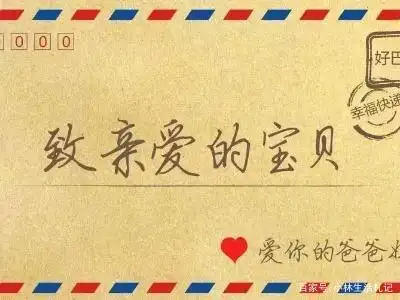 0000
好巴
幸福快递
致亲爱的宝贝
爱你的爸爸
百家号/小林生活札记